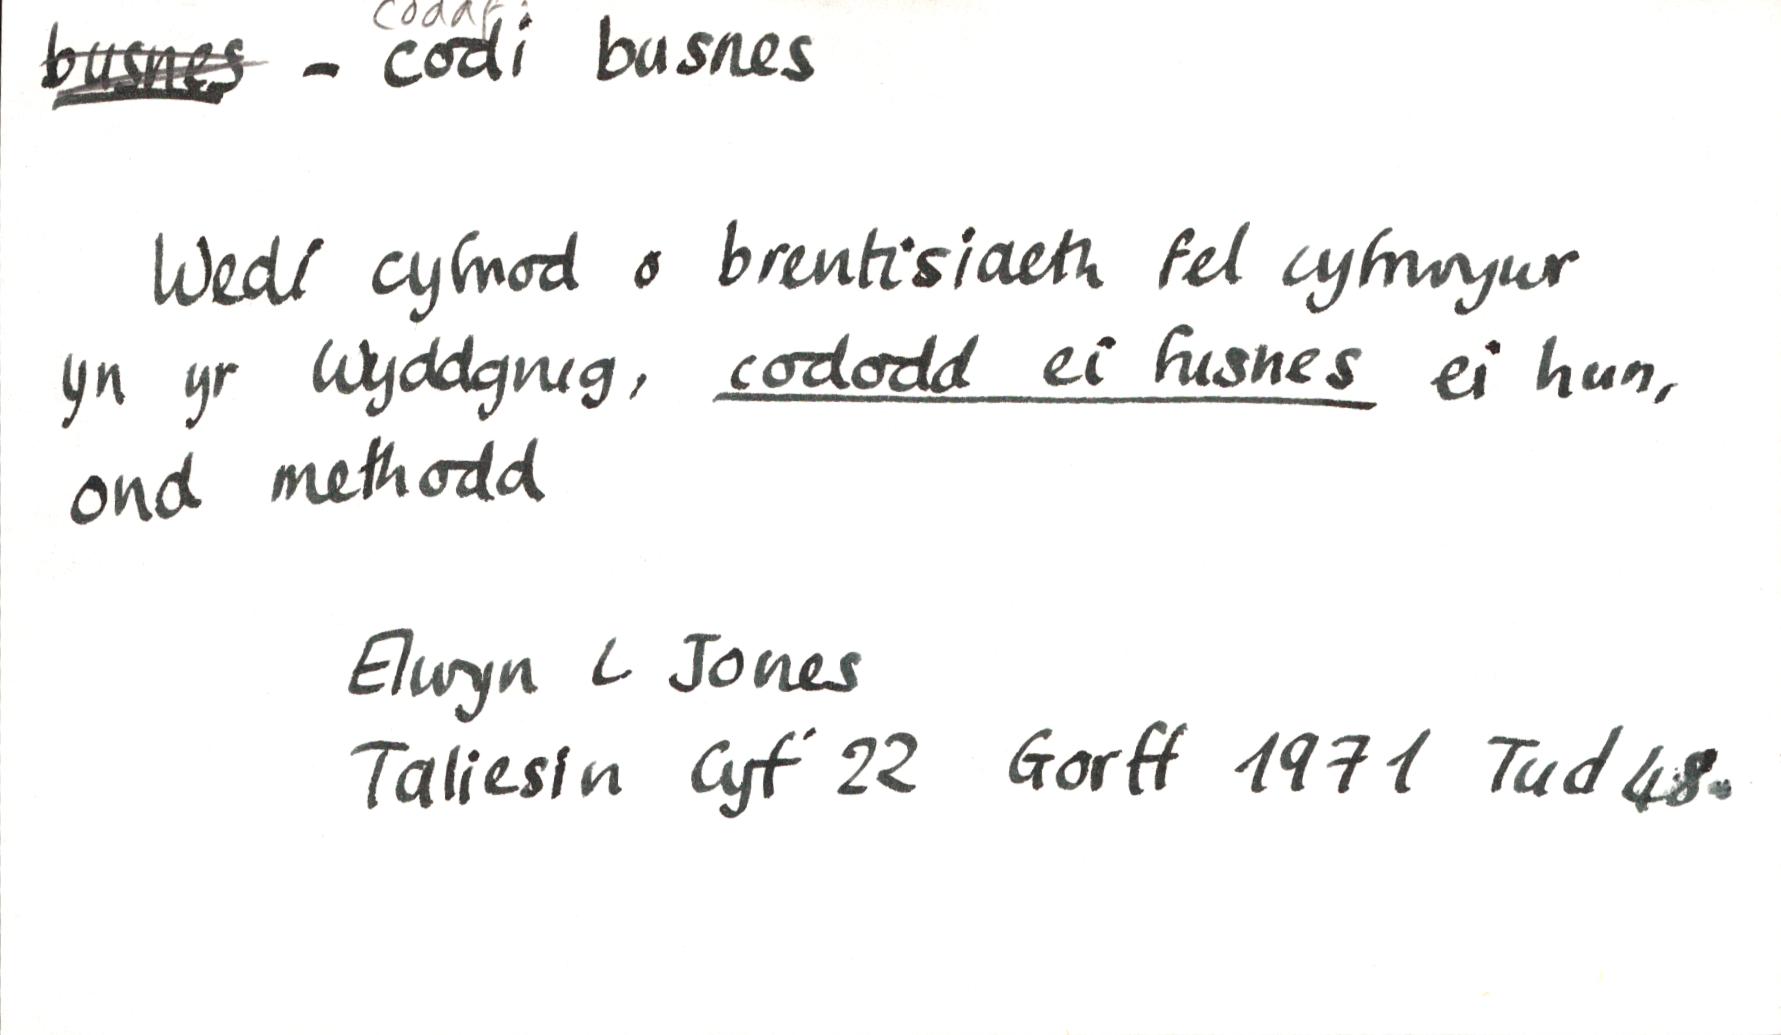 codaf:
busnes - codi busnes
Wedi cyfnod o brentisiaeth fel cyfrwywr
yn yr Wyddgrug, cododd ei fusnes ei hun,
ond methodd
Elwyn L Jones
Taliesin Cyf 22 Gorff 1971 Tud 48.